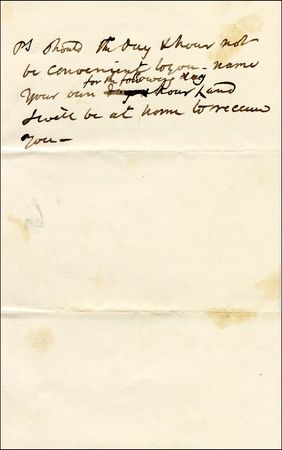 PS Should the day & hour not
be convenient to you - name
for the following day
your own day & hour & and
I will be at home to receive
you -